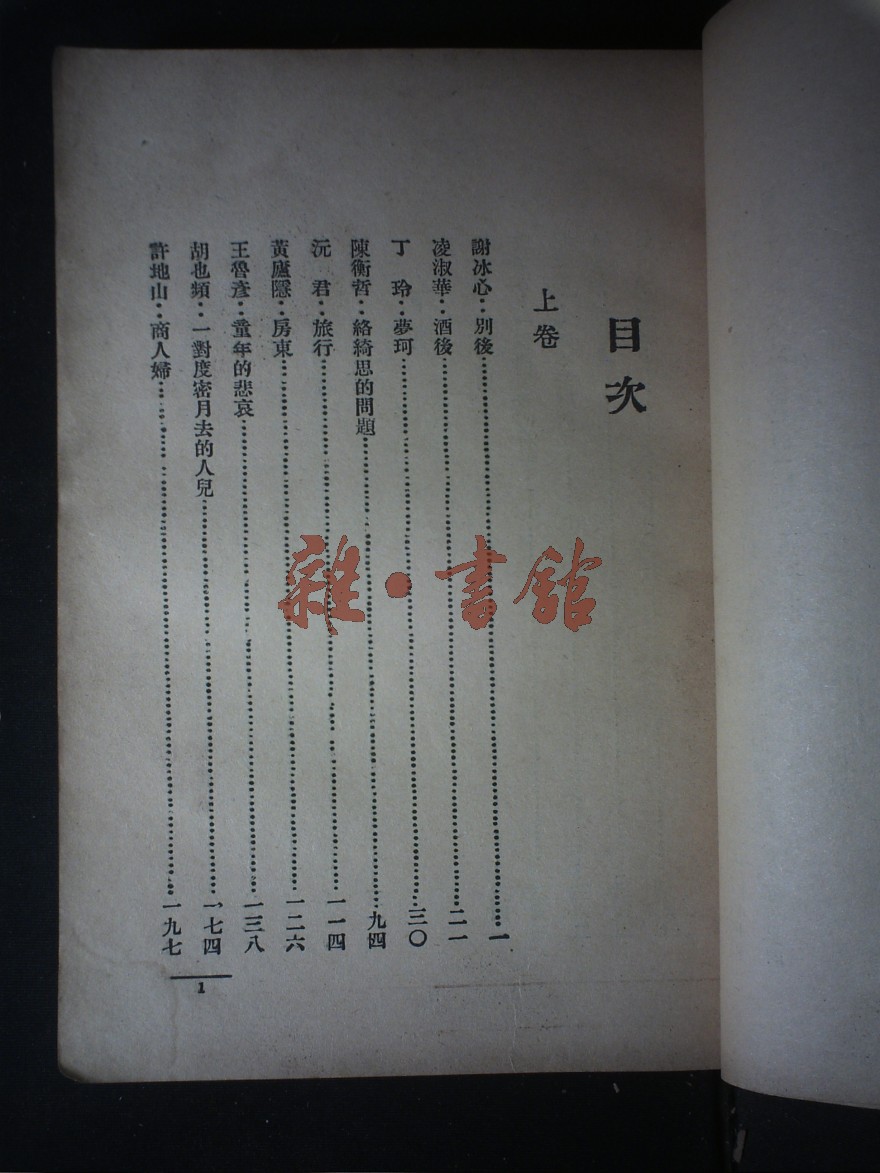 目次
上卷
謝冰心：別後……一
凌淑華：酒後……二一
丁　玲：夢珂……三〇
陳衡哲：絡綺思的問題……九四
沅　君：旅行……一一四
黃廬隱：房東……一二六
王魯彥：童年的悲哀……一三八
胡也頻：一對度密月去的人兒……一七四
許地山：商人婦……一九七
1
雜·書館